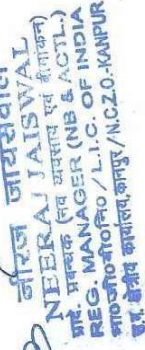 नीरज जायसवाल
NEERAJ JAISWAL
प्रबन्धक (नव व्यवसाय एवं बीमांकन)
REG. MANAGER (NB & ACTL.)
भा०जी०बी०नि० / L.I.C. OF INDIA
क्षेत्रीय कार्यालय, कानपुर / N.C.Z.O.-KANPUR